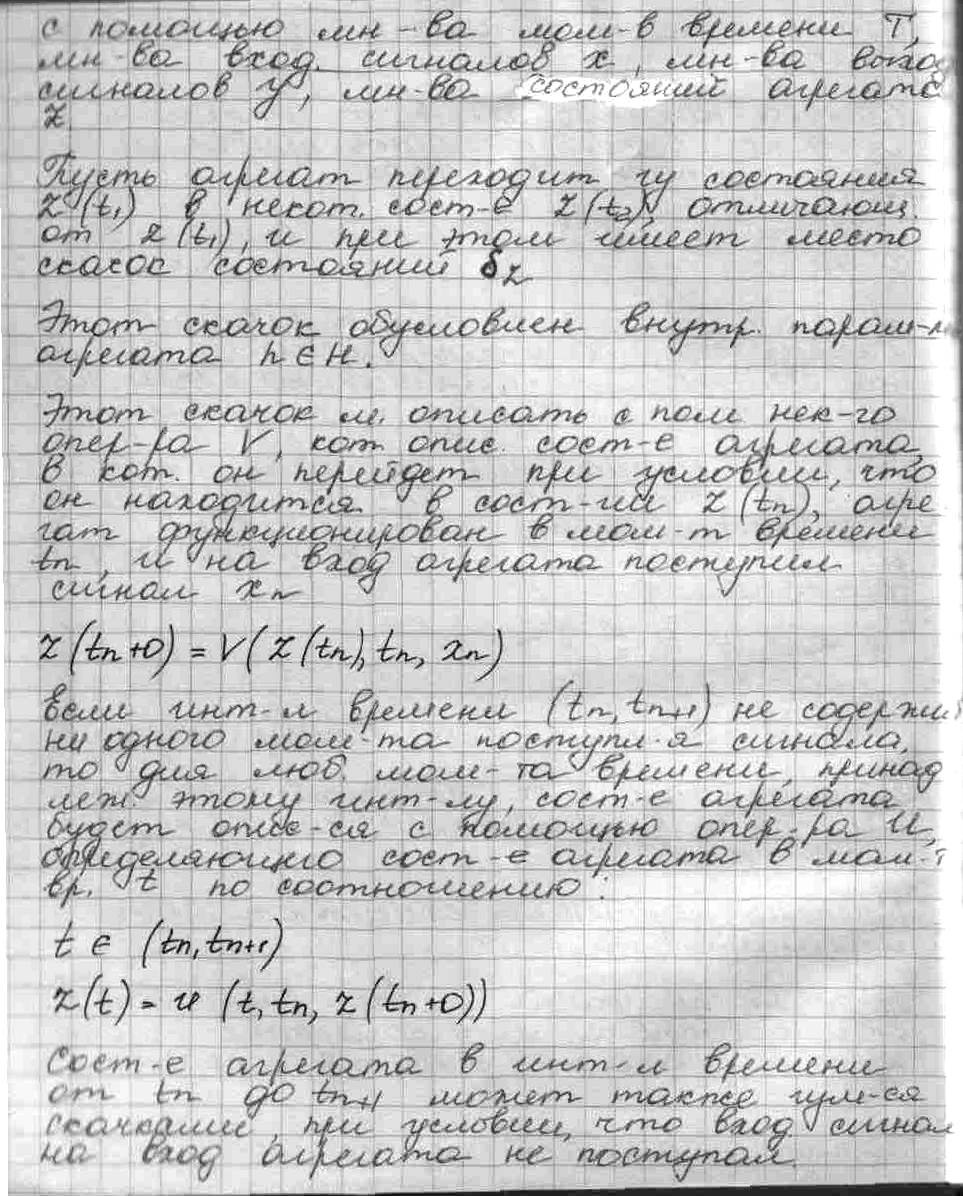 с помощью мн-ва мом-в времени T,
мн-ва вход. сигналов x, мн-ва выход
сигналов y, мн-ва состояний агрегата
Z.
Пусть агрегат переходит из состояния
z(t₁) в некот. сост-е z(t₂), отличающ.
от z(t₁), и при этом имеет место
скачок состояний δz
Этот скачок обусловлен внутр. парам-
агрегата h ∈ H.
Этот скачок м. описать с пом нек-го
опер-ра V, кот. опис. сост-е агрегата,
в кот. он перейдет при условии, что
он находится в сост-ии z(tn), агре
гат функционирован в мом-т времени
tn, и на вход агрегата поступил
сигнал xn
z(tn+0) = V(z(tn), tn, xn)
Если инт-л времени (tn, tn+1) не содержит
ни одного мом-та поступл-я сигнала,
то для люб. мом-та времени, принад
леж. этому инт-лу, сост-е агрегата
будет опис-ся с помощью опер-ра U,
определяющего сост-е агрегата в мом-т
вр. t по соотношению:
t ∈ (tn, tn+1)
z(t) = u (t, tn, z(tn+0))
Сост-е агрегата в инт-л времени
от tn до tn+1 может также изм-ся
скачками, при условии, что вход сигнал
на вход агрегата не поступал.